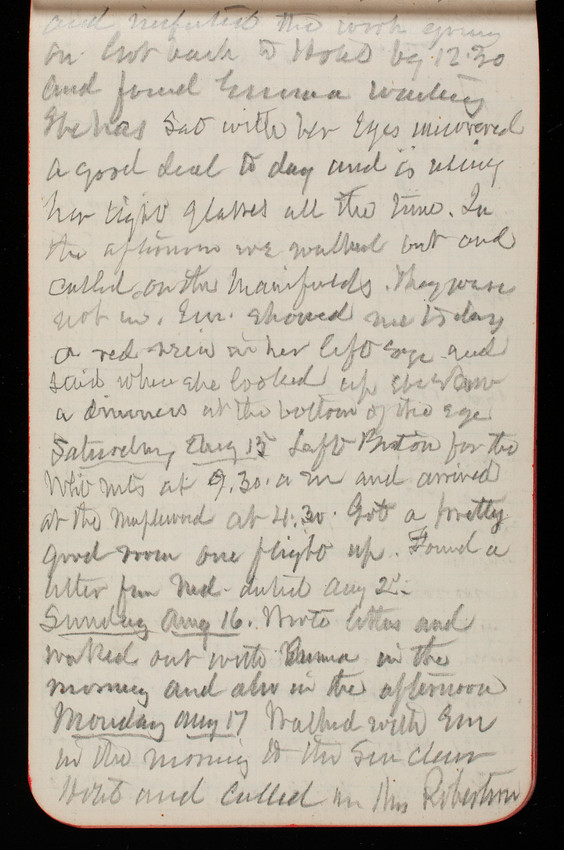 and inspected the work going
on. Got back to Hotel by 12.30
and found Emma waiting
She has sat with her Eyes uncovered
a good deal to day and is using
her light glasses all the time. In
the afternoon we walked out and
called on the Manifolds. They were
not in. Em. showed me to day
a red vein in her left eye and
said when she looked up she saw
a dimness at the bottom of the eye
Saturday Aug 15 Left Boston for the
White Mts at 9.30. a m and arrived
at the Maplewood at 4.30. Got a pretty
good room one flight up. Found a
letter from Ned. dated Aug 2d.
Sunday Aug 16. Wrote letters and
walked out with Emma in the
morning and also in the afternoon
Monday Aug 17 Walked with Em
in the morning to the Sinclair
Hotel and called on Mrs Robertson